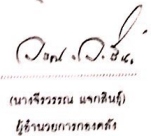 (นางจีรวรรณ แจกสินธุ์)
ผู้อำนวยการกองคลัง